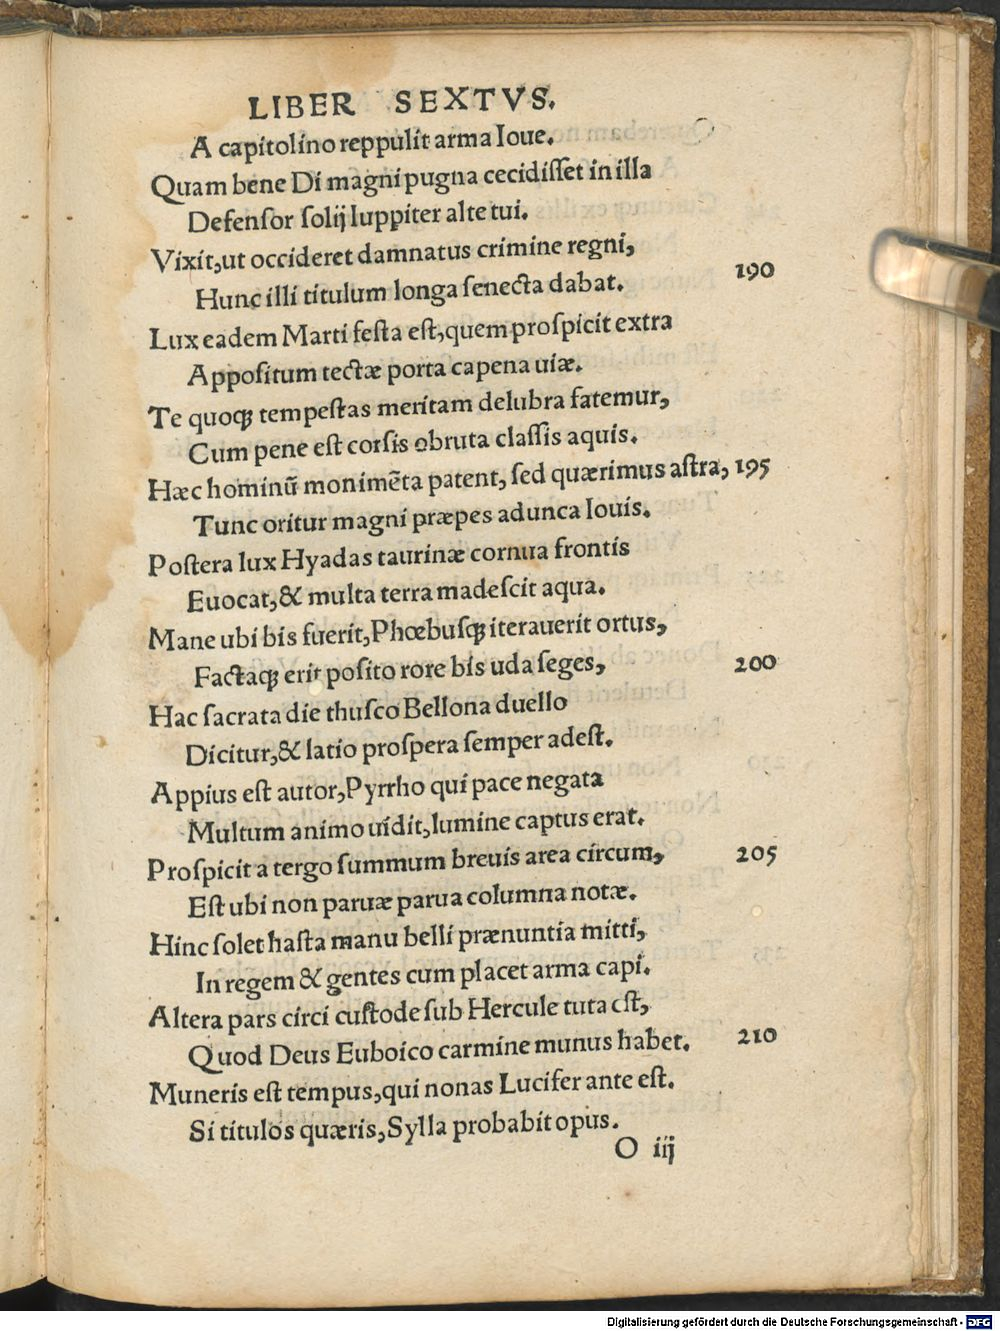 LIBER SEXTVS.
A capitolino reppulit arma Ioue.
Quam bene Di magni pugna cecidiſſet in illa
Defenſor ſolij Iuppiter alte tui.
Vixit,ut occideret damnatus crimine regni,
Hunc illi titulum longa ſenecta dabat. 190
Lux eadem Marti feſta eſt,quem proſpicit extra
Appoſitum tectæ porta capena uiæ.
Te quoqꝫ tempeſtas meritam delubra fatemur,
Cum pene eſt corſis obruta claſſis aquis.
Hæc hominũ monimẽta patent, ſed quærimus aſtra, 195
Tunc oritur magni præpes adunca Iouis.
Poſtera lux Hyadas taurinæ cornua frontis
Euocat,& multa terra madeſcit aqua.
Mane ubi bis fuerit,Phœbuſqꝫ iterauerit ortus,
Factaqꝫ erit poſito rore bis uda ſeges, 200
Hac ſacrata die thuſco Bellona duello
Dicitur,& latio proſpera ſemper adeſt.
Appius eſt autor,Pyrrho qui pace negata
Multum animo uidit,lumine captus erat.
Proſpicit a tergo ſummum breuis area circum, 205
Eſt ubi non paruæ parua columna notæ.
Hinc ſolet haſta manu belli prænuntia mitti,
In regem & gentes cum placet arma capi.
Altera pars circi cuſtode ſub Hercule tuta eſt,
Quod Deus Euboico carmine munus habet. 210
Muneris eſt tempus,qui nonas Lucifer ante eſt.
Si titulos quæris,Sylla probabit opus.
O iij
Digitalisierung gefördert durch die Deutsche Forschungsgemeinschaft - DFG